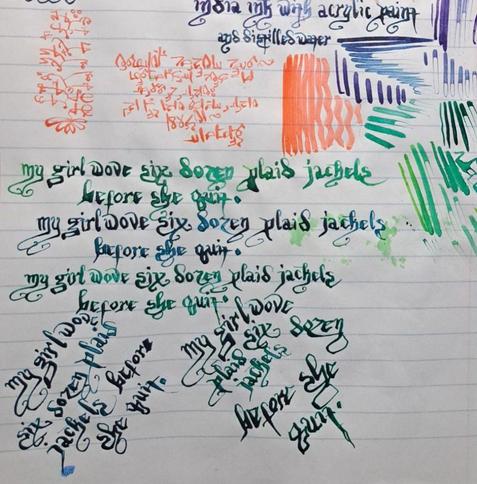 india ink with acrylic paint
and distilled water
my girl wove six dozen plaid jackets
before she quit.
my girl wove six dozen plaid jackets
before she quit.
my girl wove six dozen plaid jackets
before she quit.
my girl wove
six dozen plaid
jackets before
she quit.
my girl wove
six dozen
plaid jackets
before she
quit.